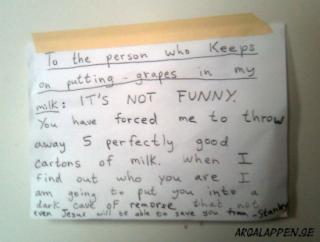 To the person who Keeps
on putting grapes in my
milk: IT'S NOT FUNNY.
You have forced me to throw
away 5 perfectly good
cartons of milk. When I
find out who you are I
am going to put you into a
dark cave of remorse that not
even Jesus will be able to save you from -Stanley
ARGALAPPEN.SE